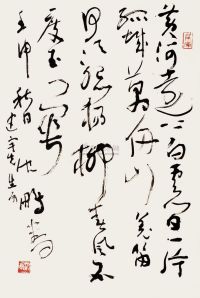 黄河远上白云间一片
孤城万仞山羌笛
何须怨杨柳春风不
度玉门关
壬申秋日沈鹏